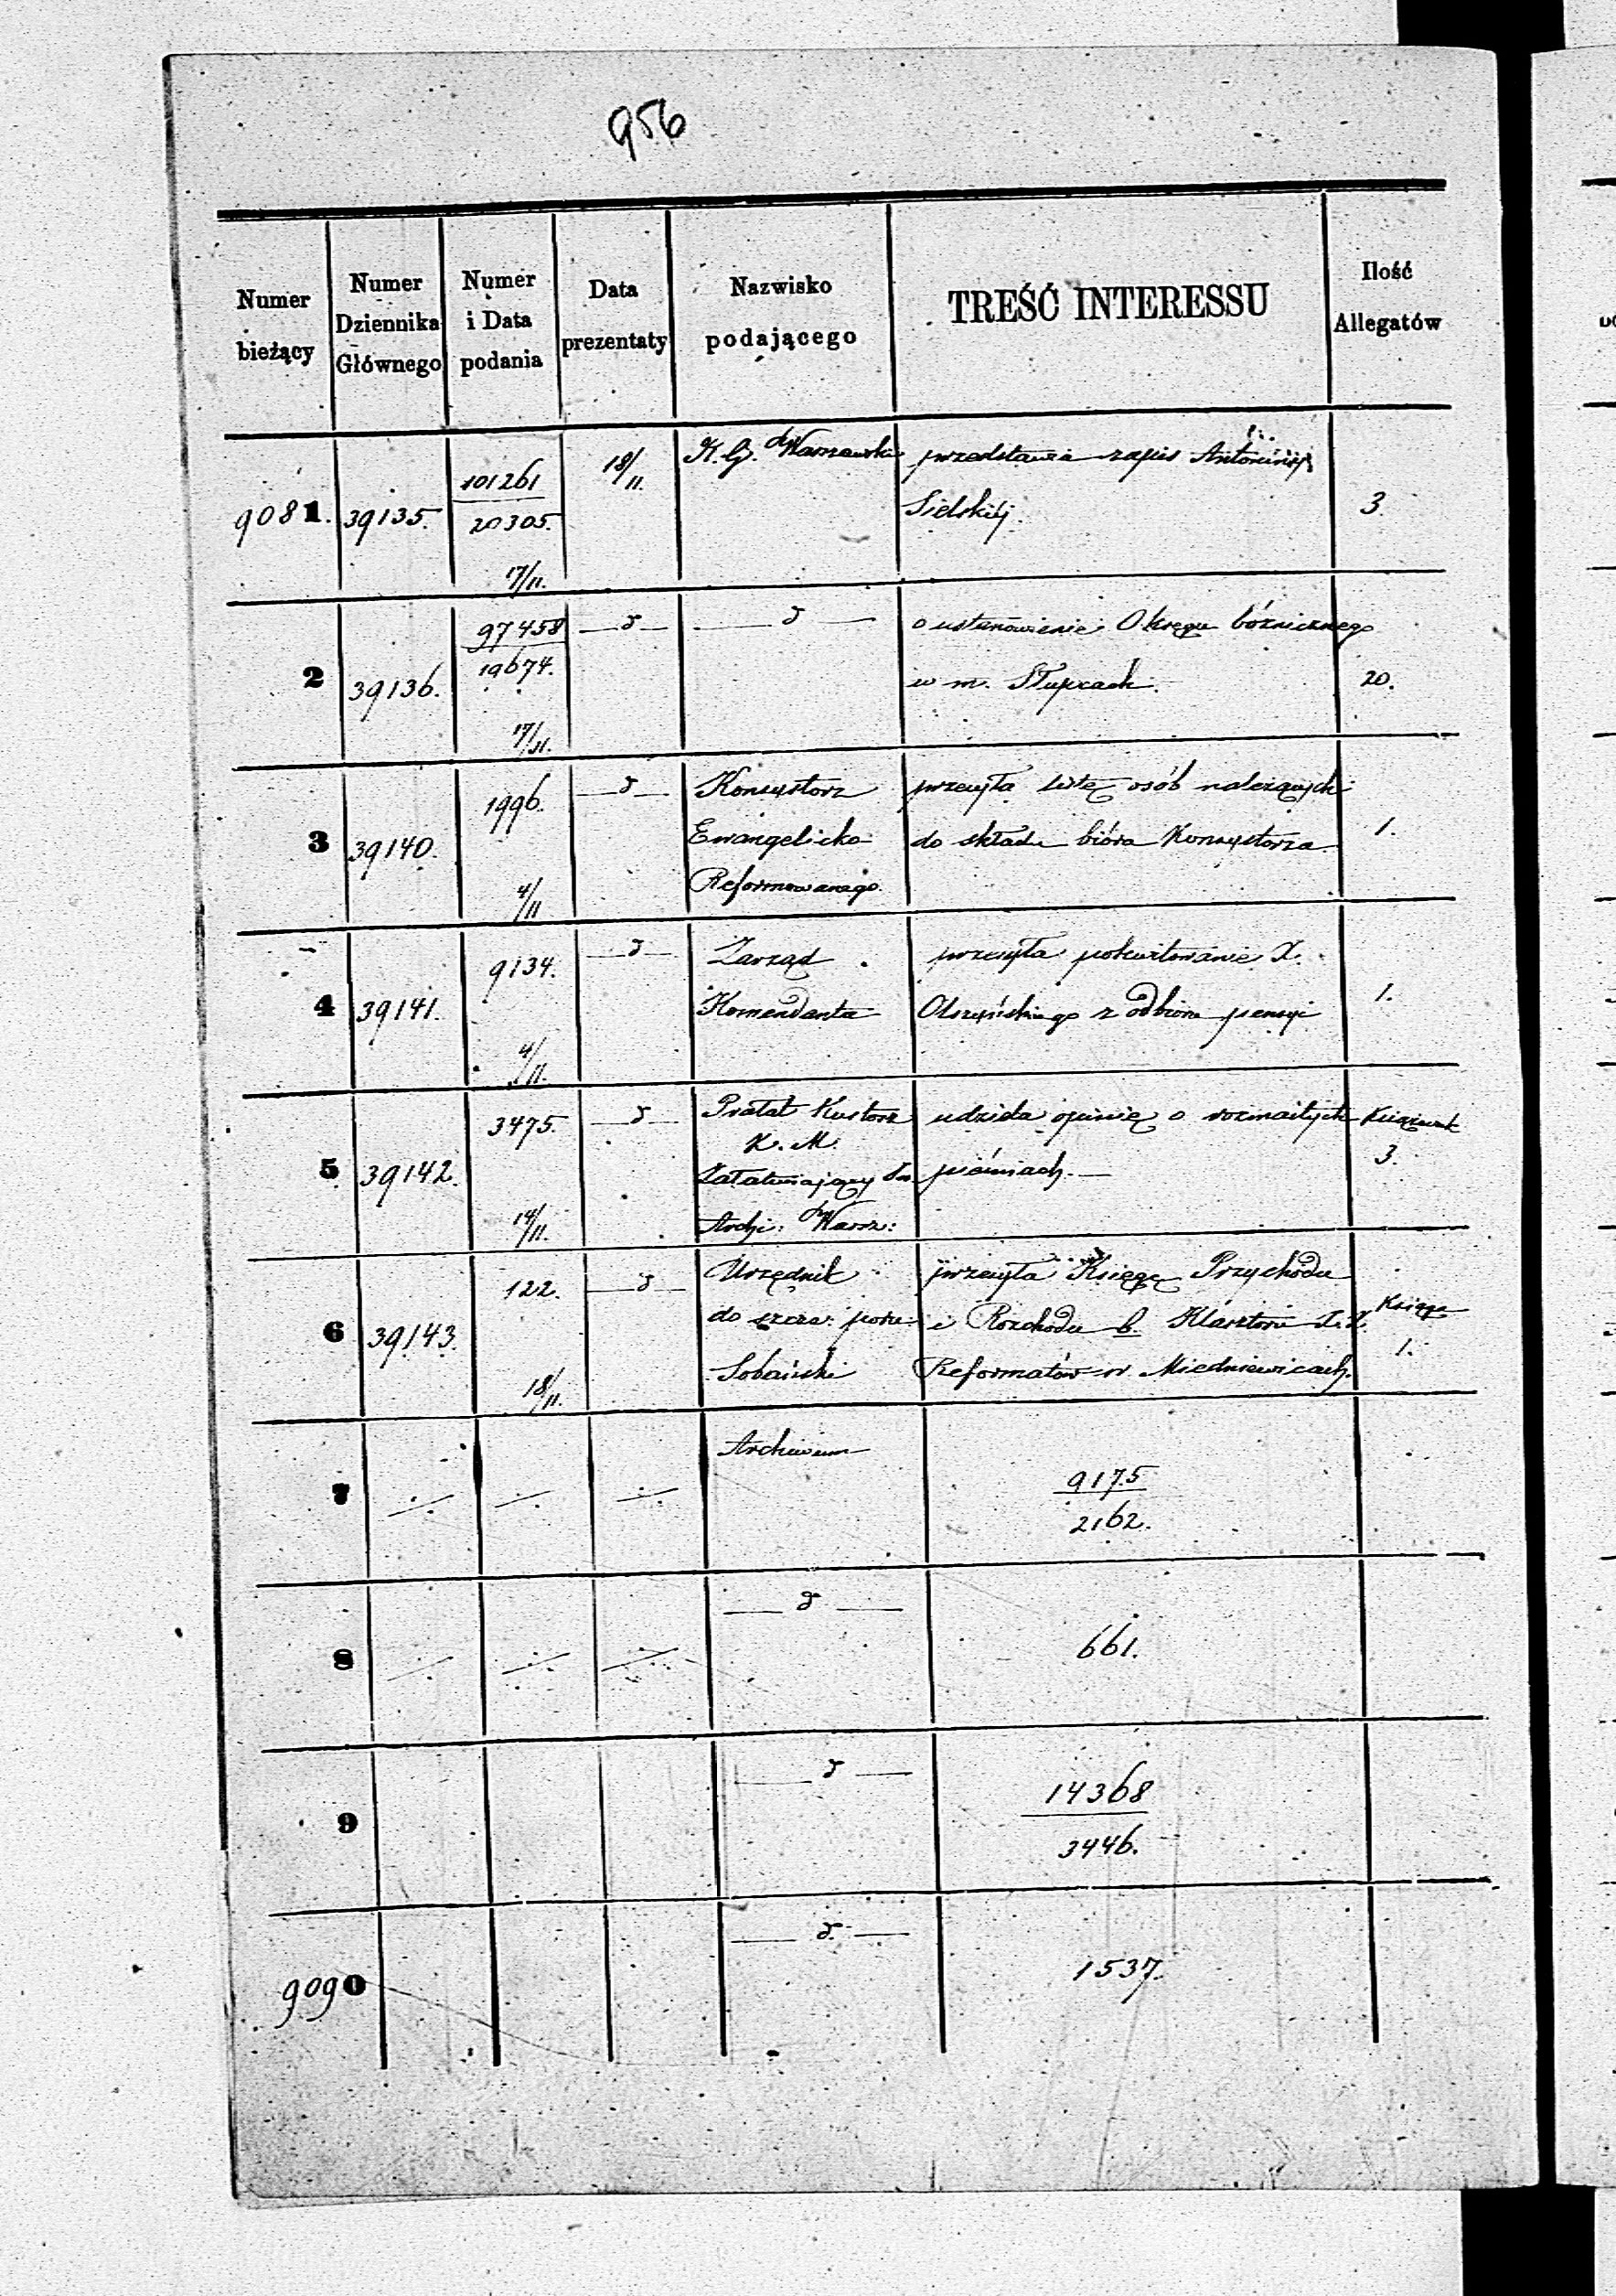 956
Numer bieżący
Numer Dziennika Głównego
Numer i Data podania
Data prezentaty
Nazwisko podającego
TREŚĆ INTERESSU
Ilość Allegatów
9081. 39135. 101261 18/11. K. G. Warszawski przedstawia zapis Antoniny
20305. Sielskiéj. 3.
17/11.
97458 d d o ustanowienie Okręgu bóżnicznego
2 39136. 19674. w m. Słupcach. 20.
17/11.
1996. d Konsystorz przesyła listę osób należących
3 39140. Ewangelicko do składu bióra Konsystorza 1.
4/11 Reformowanego.
9134. d Zarząd przesyła pokwitowanie X.
4 39141. Komendanta z odbioru pensyi 1.
4/11.
3475. d Prałat Kustosz udziela opinię o rozmaitych Książek
K. M.
5 39142. Załatwiający pieśniach. 3.
14/11. Archi: Warsz:
122. d Urzędnik przesyła Księgę Przychodu
6 39143. do szcze: poru: i Rozchodu b. Klasztoru X.X. Księga
18/11. Sobański Reformatów w Miedniewicach. 1.
Archiwum
7 9175
2162.
d
8 661.
d
9 14368
3446.
d
9090 1537.